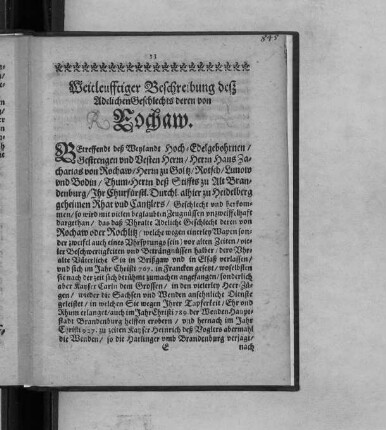 845
33
Weitleufftiger Beschreibung deß
Adelichen Geschlechts deren von
Rochaw.
BEtreffende deß Weylandt Hoch-Edelgebohrnen/
Gestrengen und Vesten Herrn/ Herrn Hans Za-
charias von Rochaw/ Herrn zu Goltz/ Rotsch/
und Bodin/ Thum-Herrn deß Stiffts zu Alt Bran-
denburg/ Ihr Churfürstl. Durchl. allhier zu Heidelberg
geheimen Rhat und Cantzlers/ Geschlecht und herkom-
men/ so wird mit vielen beglaubten Zeugnüssen unzweiffelhafft
dargethan/ das daß Uhralte Adeliche Geschlecht deren von
Rochaw oder Rochlitz/ welche wegen einerley Wapen son-
der zweifel auch eines Uhrsprungs sein/ vor alten Zeiten/ vie-
ler Beschwerigkeiten und Betrangnüssen halber/ dero Uhr-
alte Väterliche Sitz in Breißgaw und in Elsaß verlassen/
und sich im Jahr Christi 797. in Francken gesetzt/ woselbsten
sie nach der zeit sich berühmt zumachen angefangen/ sonderlich
aber Kayser Carln dem Grossen/ in den vielerley Heer-Zü-
gen/ wieder die Sachsen und Wenden ansehnliche Dienste
geleistet/ in welchen Sie wegen Ihrer Tapferkeit/ Ehr und
Rhum erlanget/ auch im Jahr Christi 789 der Wenden Haupt-
stadt Brandenburg helffen erobern/ und hernach im Jahr
Christi 927. zu zeiten Kayser Heinrich deß Voglers abermahl
die Wenden/ so die Harlinger und Brandenburg verjagt/
E nach